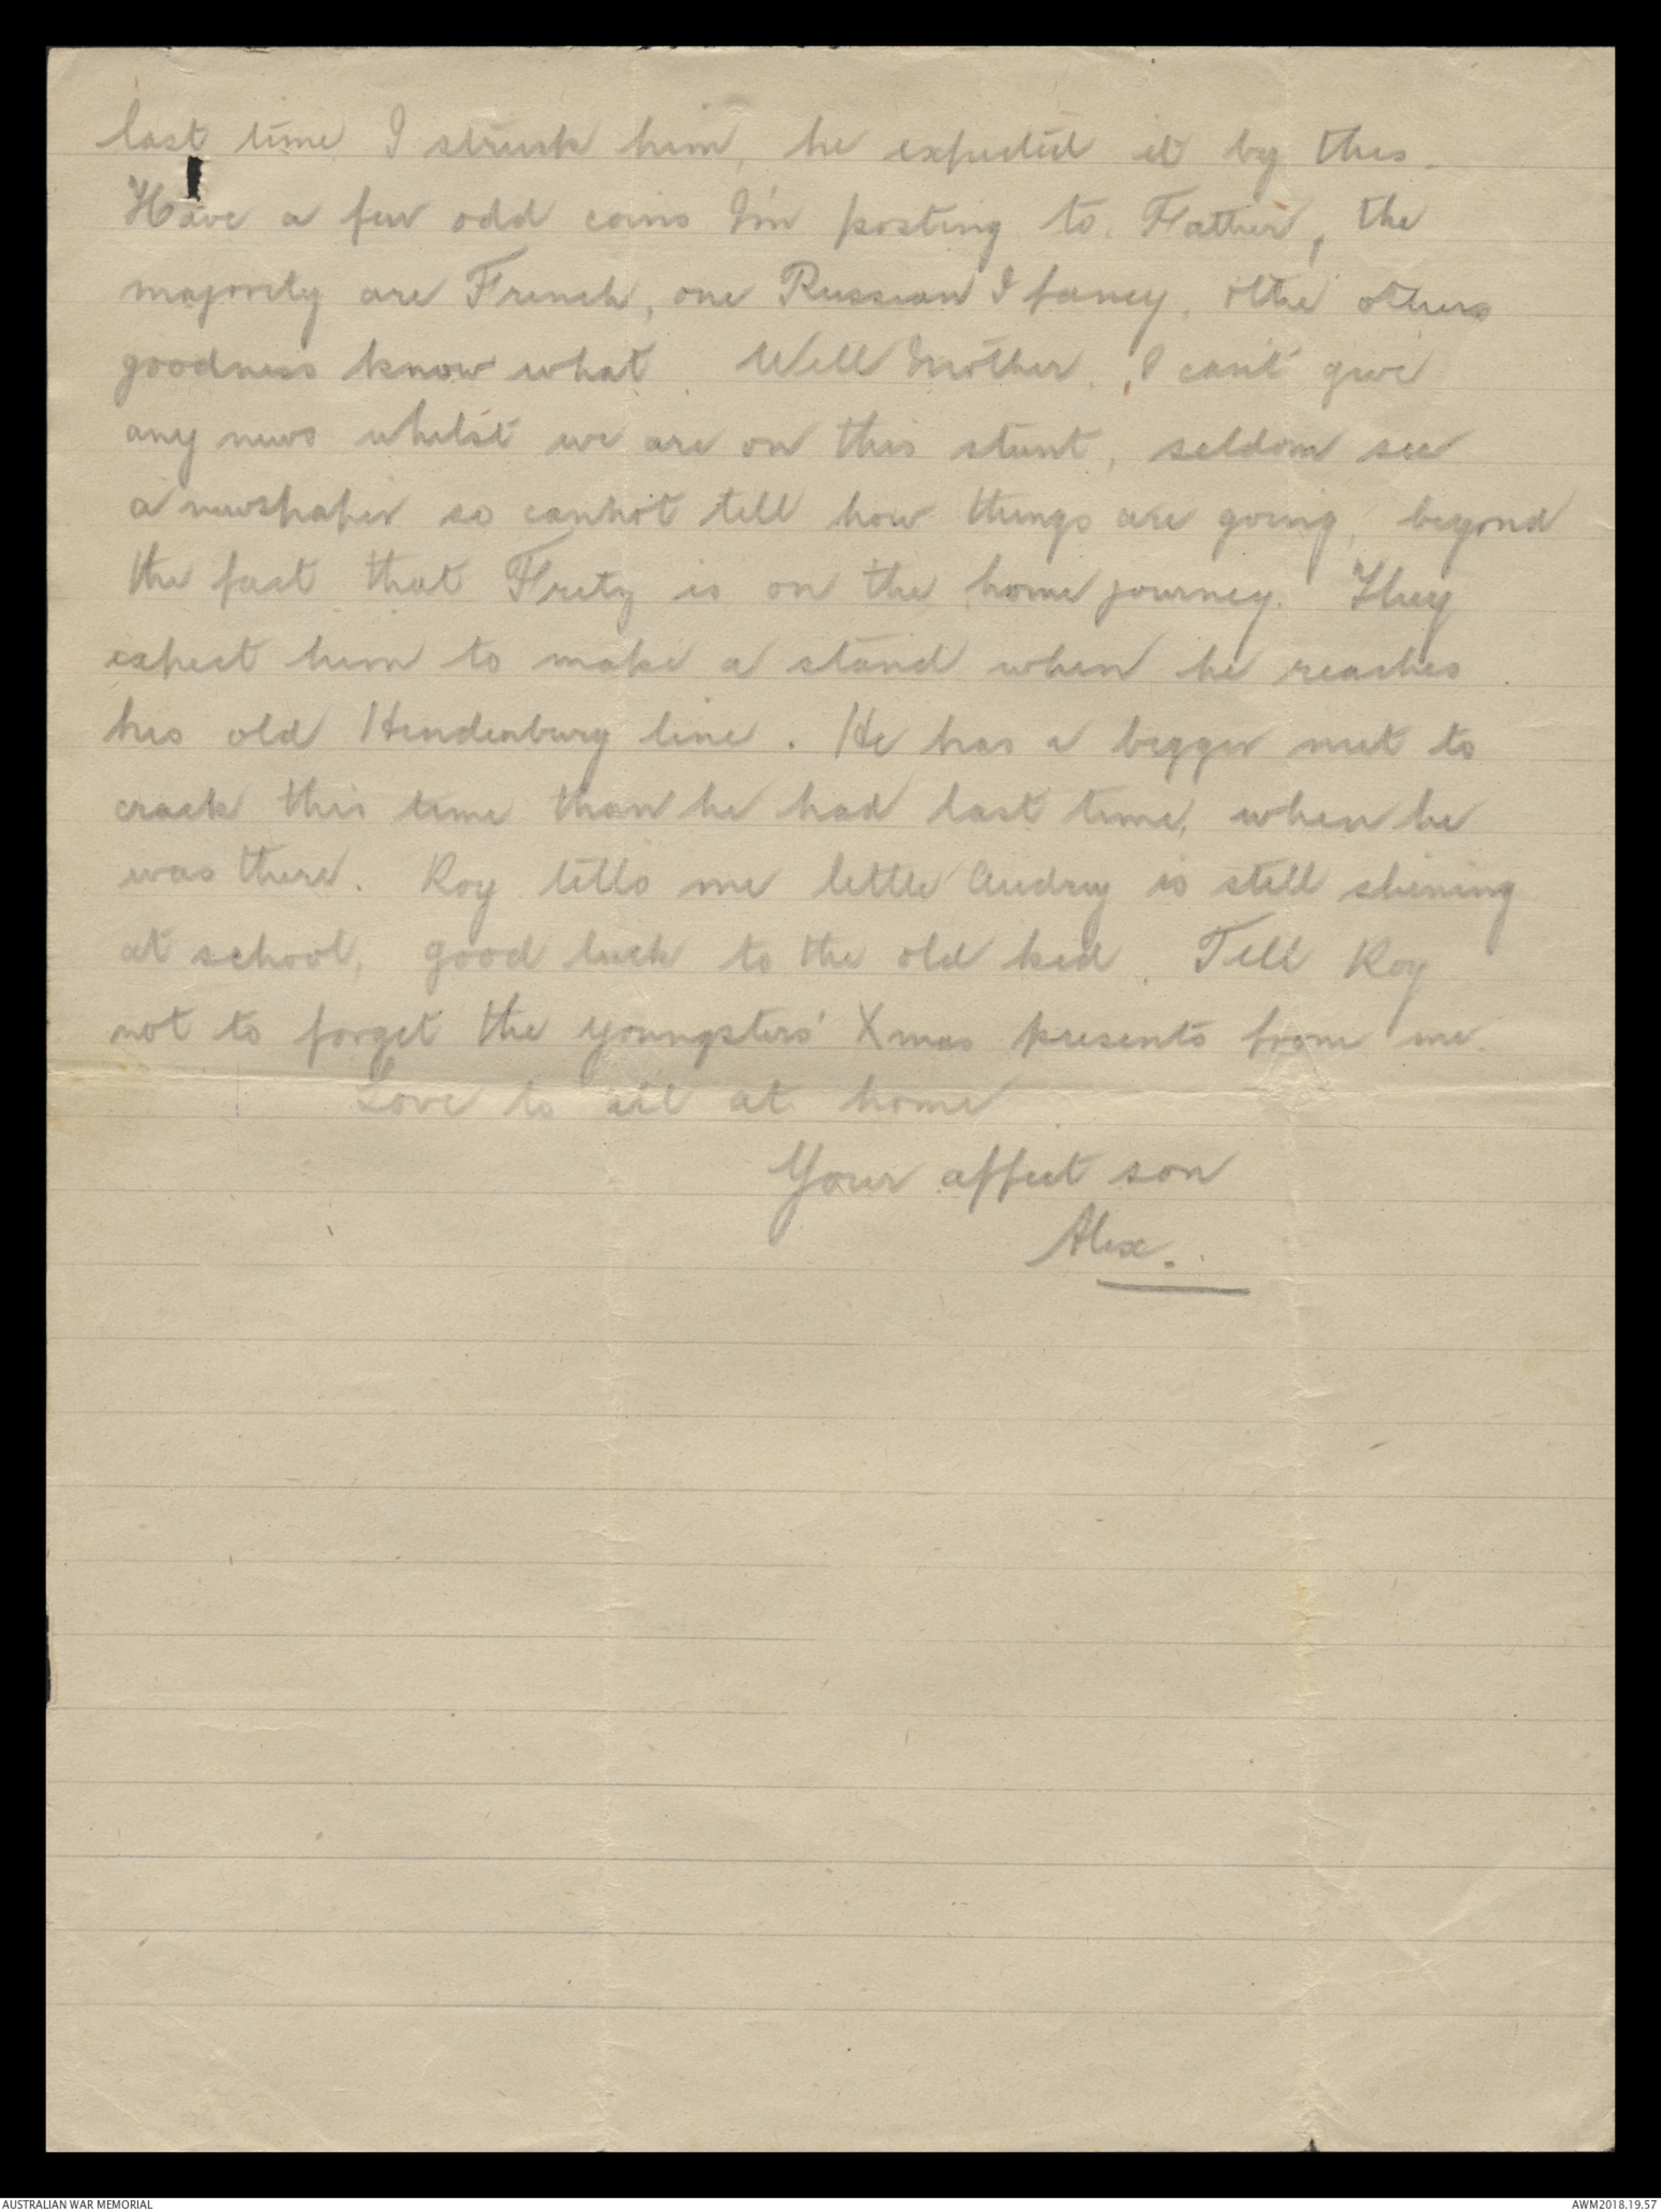 last time I struck him, he expected it by this.
Have a few odd coins I'm posting to Father, the
majority are French, one Russian I fancy, & the others
goodness know what. Well Mother, I can't give
any news whilst we are on this stunt, seldom see
a newspaper so cannot tell how things are going, beyond
the fact that Fritz is on the home journey. They
expect him to make a stand when he reaches
his old Hindenburg line. He has a bigger nut to
crack this time than he had last time, when he
was there. Roy tells me little Audrey is still shining
at school, good luck to the old kid. Tell Roy
not to forget the youngsters' Xmas presents from me.
Love to all at home
Your affect son
Alex.
AUSTRALIAN WAR MEMORIAL
AWM2018.19.57